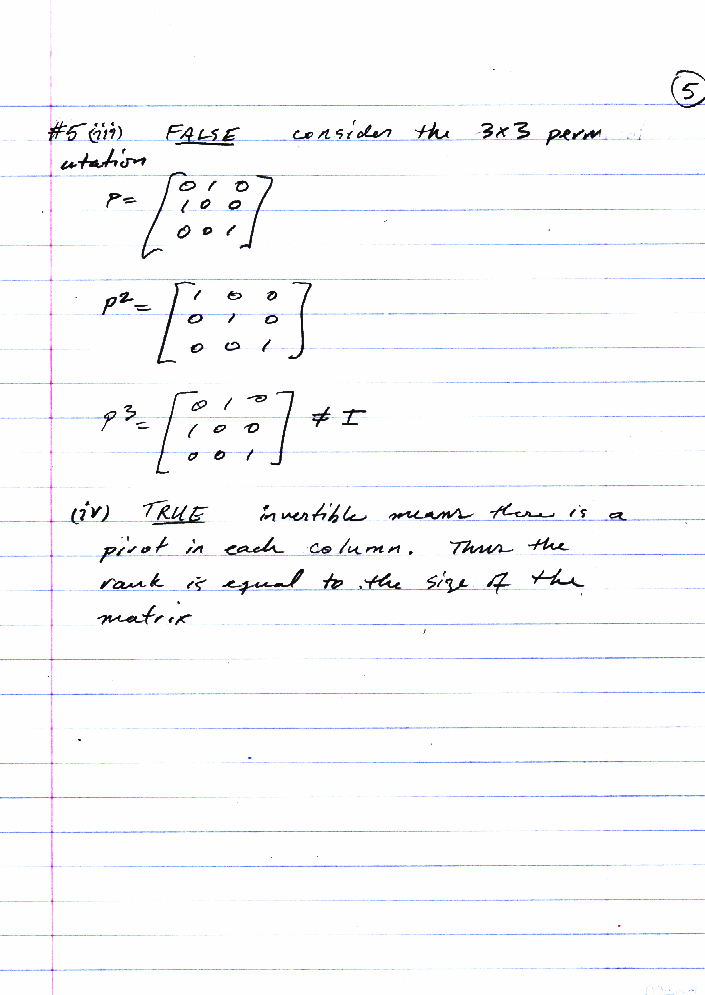 5
#5 (iii) FALSE consider the 3x3 perm
utation
P= [0 1 0
1 0 0
0 0 1]
P²= [1 0 0
0 1 0
0 0 1]
P³= [0 1 0
1 0 0
0 0 1] ≠ I
(iv) TRUE invertible means there is a
pivot in each column. Thus the
rank is equal to the size of the
matrix